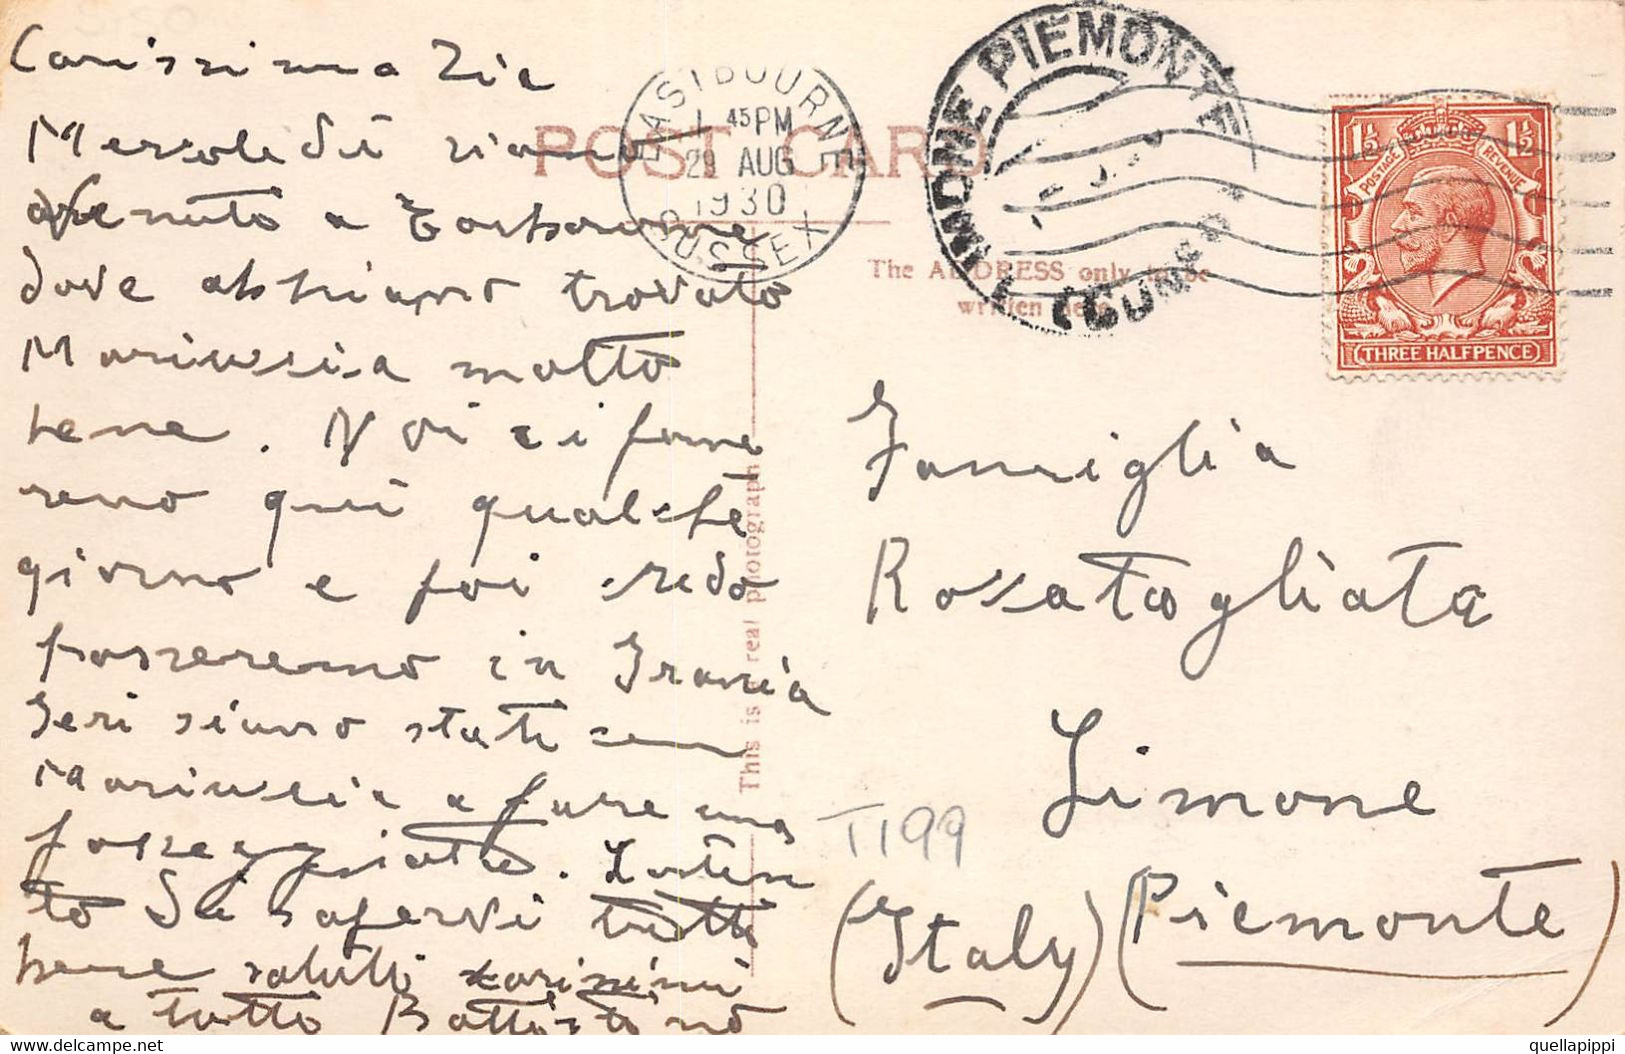 Carissima Zia
Mercoledì siamo
venuto a Eastbourne
dove abbiamo trovato
Mariuccia molto
bene. Noi ci ferme
remo qui qualche
giorno e poi credo
passeremo in Francia
Ieri siamo stati con
Mariuccia a fare una
passeggiata. Conten
to di sapervi tutti
bene saluti carissimi
a tutti Battistino
POST CARD
The ADDRESS only to be
written here
This is a real photograph
EASTBOURNE
1 45 PM
29 AUG
1930
SUSSEX
LIMONE PIEMONTE
(CUNEO)
1½ 1½
POSTAGE REVENUE
THREE HALFPENCE
Famiglia
Rosatagliata
Limone
(Piemonte)
(Italy)
T199
delcampe.net
quellapippi